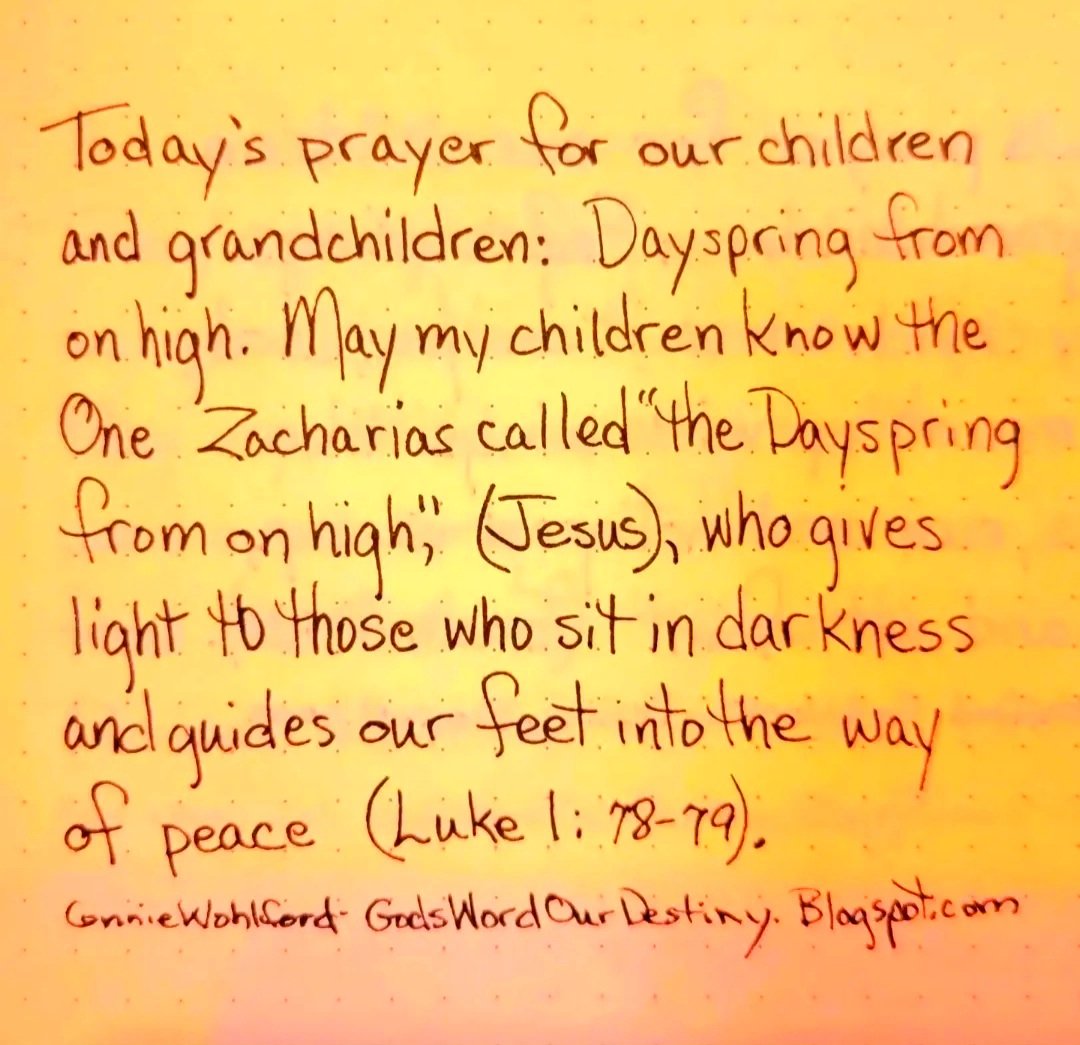 Today's prayer for our children
and grandchildren: Dayspring from
on high. May my children know the
One Zacharias called "the Dayspring
from on high," (Jesus), who gives
light to those who sit in darkness
and guides our feet into the way
of peace (Luke 1:78-79).
Connie Wohlford- GodsWordOurDestiny.Blogspot.com